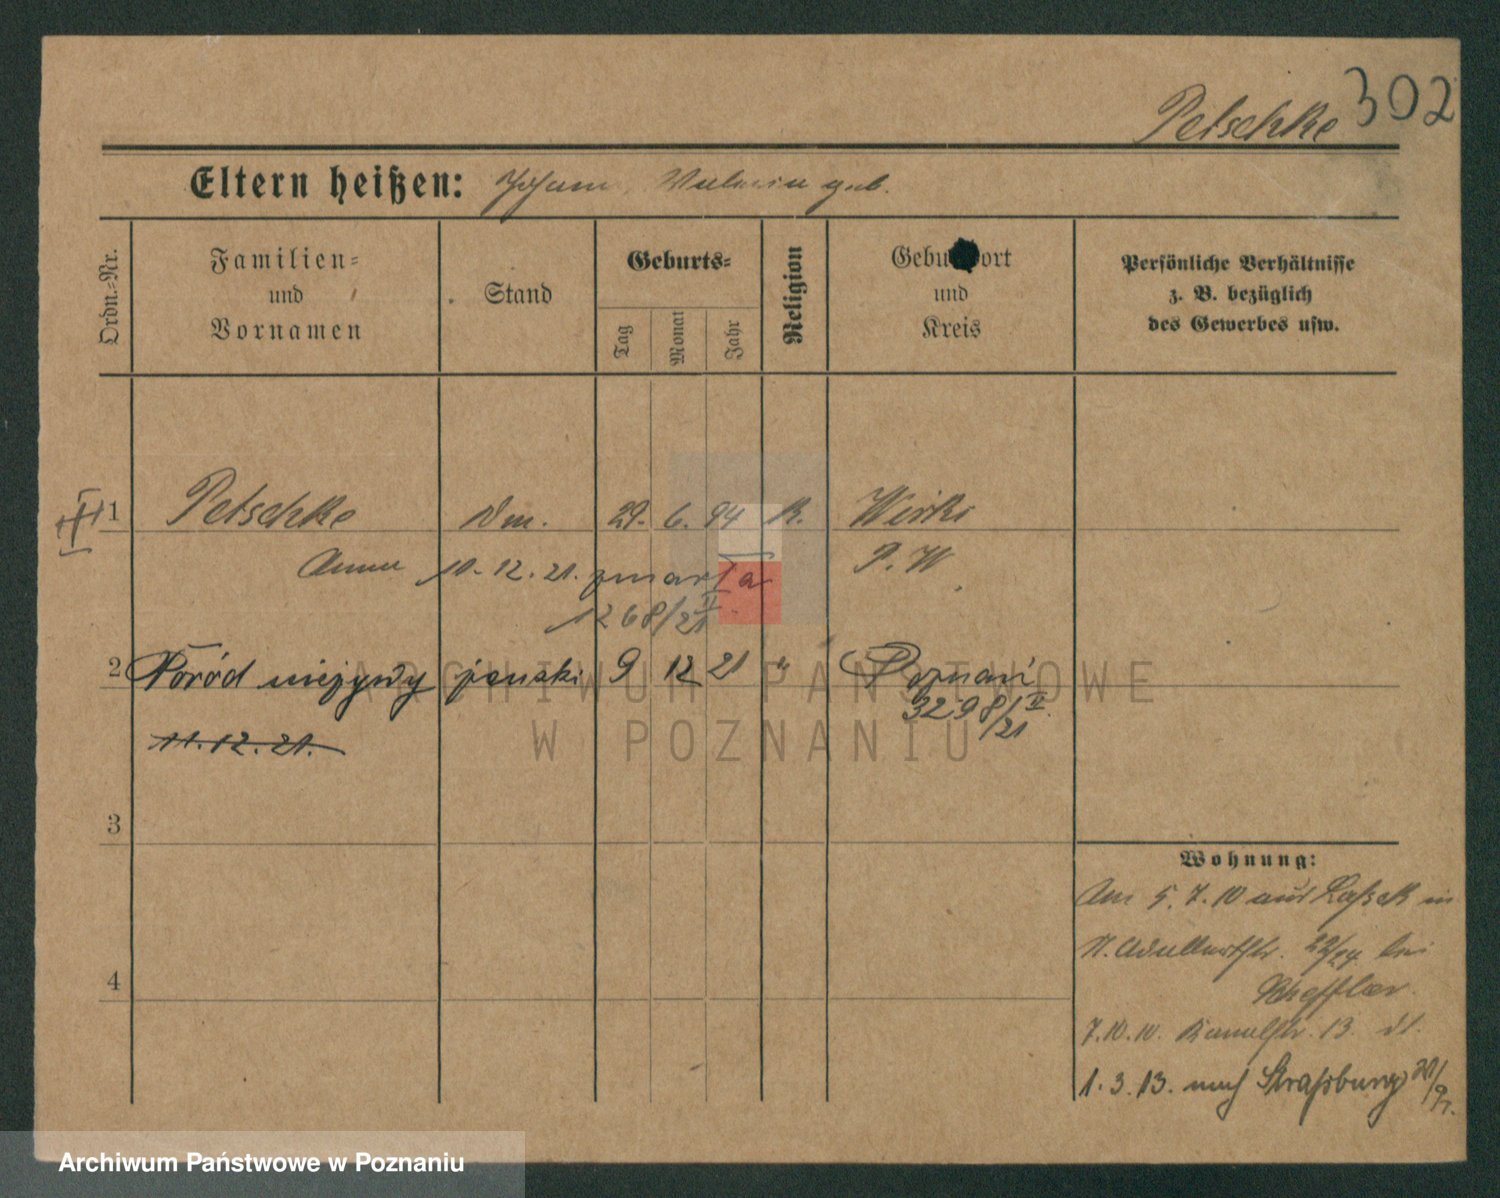 Petschke 302
Eltern heißen: Johann,  geb.
Ordn.-Nr.
Familien-
und
Vornamen
Stand
Geburts-
Tag
Monat
Jahr
Religion
Geburtsort
und
Kreis
Persönliche Verhältnisse
z. B. bezüglich
des Gewerbes usw.
III 1 Petschke Dm. 29. 6. 94 K.
Anna 10.12.21. zmarła P. W.
1268/21 II
2 Poród nieżywy żeński 9 12 21 " Poznań
3298/21 II
11.12.21.
3
4
Wohnung:
Am 5.7.10 aus Laßek in
22/24 bei
Scheffler.
7.10.10. Kanalstr. 13.
1.3.13. nach Straßburg
ARCHIWUM PAŃSTWOWE
W POZNANIU
Archiwum Państwowe w Poznaniu